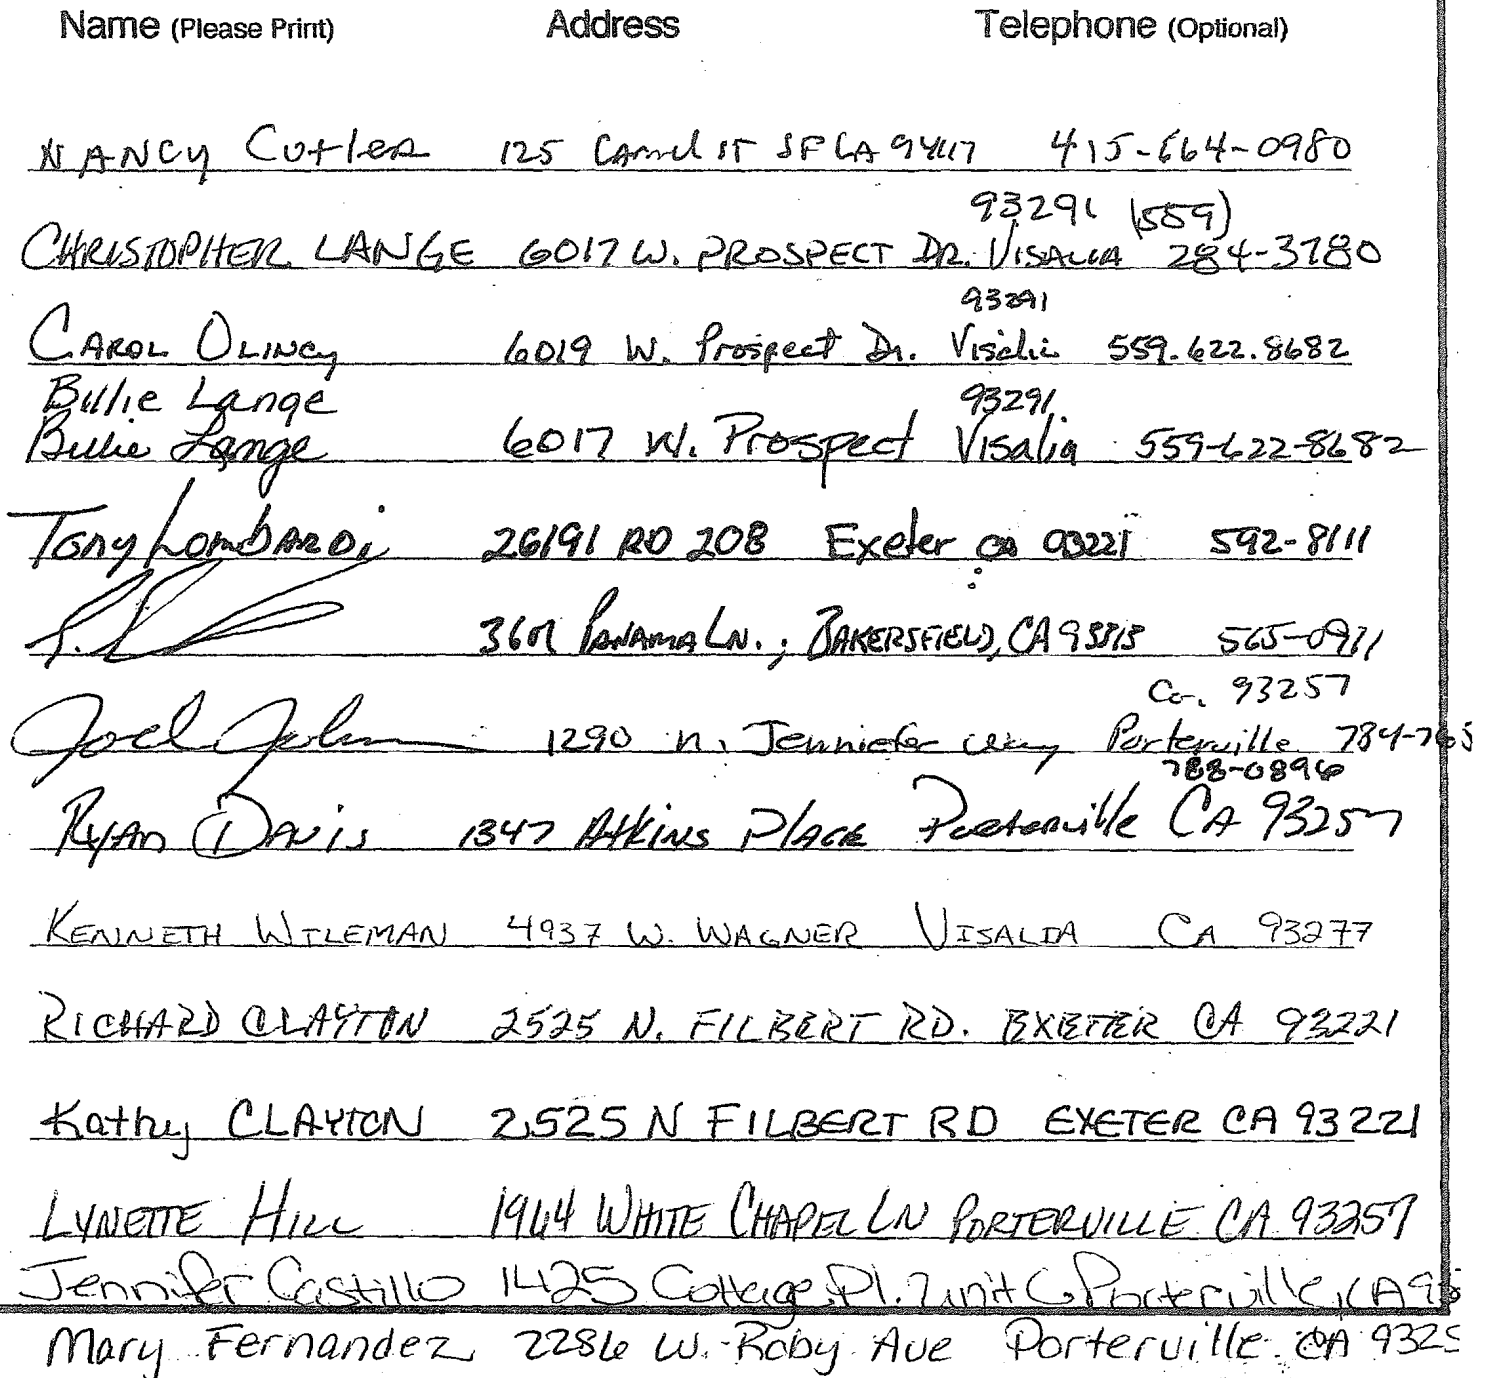 Name (Please Print) Address Telephone (Optional)
NANCY Cutler 125 Carmel ST SF CA 94117 415-664-0980
93291 (559)
CHRISTOPHER LANGE 6017 W. PROSPECT DR. VISALIA 284-3780
93291
CAROL OLINCY 6019 W. Prospect Dr. Visalia 559.622.8682
Billie Lange 93291
Billie Lange 6017 W. Prospect Visalia 559-622-8682
Tony Lombardi 26191 RD 208 Exeter ca 93221 592-8111
PANAMA LN.; BAKERSFIELD, CA 93313 565-0911
Ca. 93257
Joel 1290 n. Jennifer way Porterville 784-765
788-0896
Ryan Davis 1347 Atkins Place Porterville CA 93257
KENNETH WILEMAN 4937 W. WAGNER VISALIA CA 93277
RICHARD CLAYTON 2525 N. FILBERT RD. EXETER CA 93221
Kathy CLAYTON 2525 N FILBERT RD EXETER CA 93221
LYNETTE HILL 1964 WHITE CHAPEL LN PORTERVILLE CA 93257
Jennifer Castillo 1425 College Pl. unit C Porterville, CA 93
Mary Fernandez 2286 W. Roby Ave Porterville CA 9325